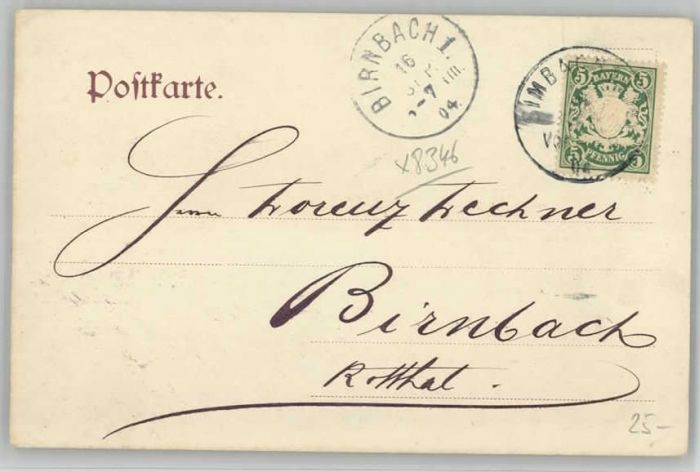 Postkarte.
BIRNBACH 1.
16
SEP.
-7 VII.
04
IMBA
5 BAYERN 5
5 PFENNIG 5
x8346
Herrn Lorenz Lechner
Birnbach
Rotthal.
25-